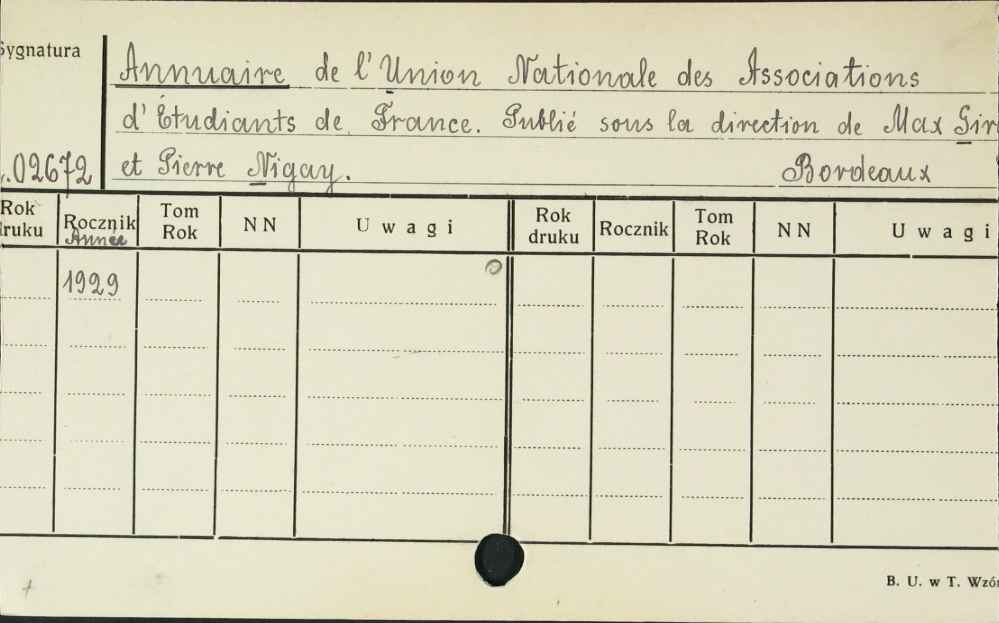 Sygnatura
Annuaire de l'Union Nationale des Associations
d'Étudiants de France. Publié sous la direction de Max Gir
02672 et Pierre Nigay. Bordeaux
Rok druku Rocznik Année Tom Rok NN Uwagi Rok druku Rocznik Tom Rok NN Uwagi
1929
B. U. w T. Wzór